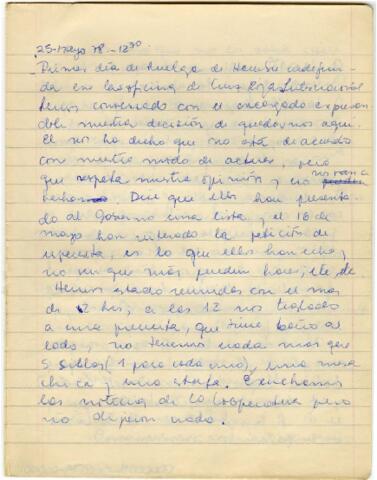 25-Mayo 78 - 12³⁰
Primer día de huelga de Hambre indefini-
da en la oficina de Cruz Roja Internacional
Hemos conversado con el encargado expresan
dole nuestra decisión de quedarnos aquí.
El nos ha dicho que no está de acuerdo
con nuestro modo de actuar, pero
que respeta nuestra opinión y no nos van a
. Dice que ellos han presenta-
do al Gobierno una lista, y el 16 de
mayo han reiterado la petición de
respuesta, es lo que ellos han hecho,
no ve que más pueden hacer;
Hemos estado reunidos con el mas
de 2 hrs; a las 12 nos traslados
a una piecesita, que tiene baño al
lado, no tenemos nada mas que
5 sillas (1 para cada uno), una mesa
chica y una estufa. Escuchamos
las noticias de la Cooperativa pero
no dijeron nada.